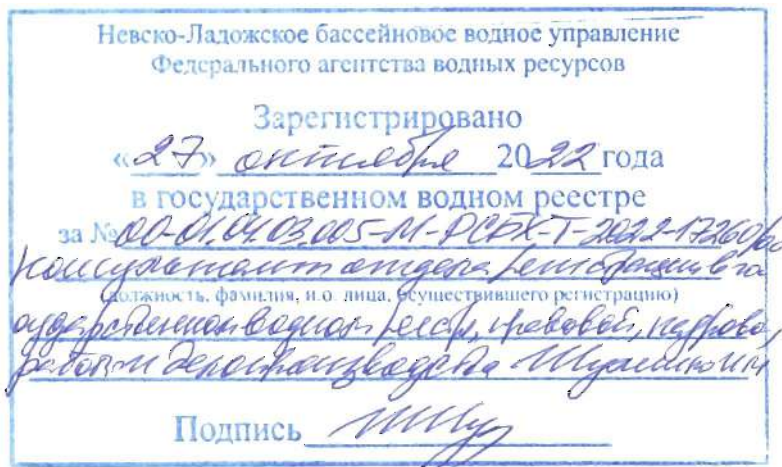 Невско-Ладожское бассейновое водное управление
Федерального агентства водных ресурсов
Зарегистрировано
«27» октября 2022 года
в государственном водном реестре
за № 00-01.04.03.005-М-РСБХ-Т-2022-17260/00
консультант отдела регистрации в го
(должность, фамилия, и.о. лица, осуществившего регистрацию)
сударственном водном реестре, правовой, кадровой
работы и делопроизводства
Подпись